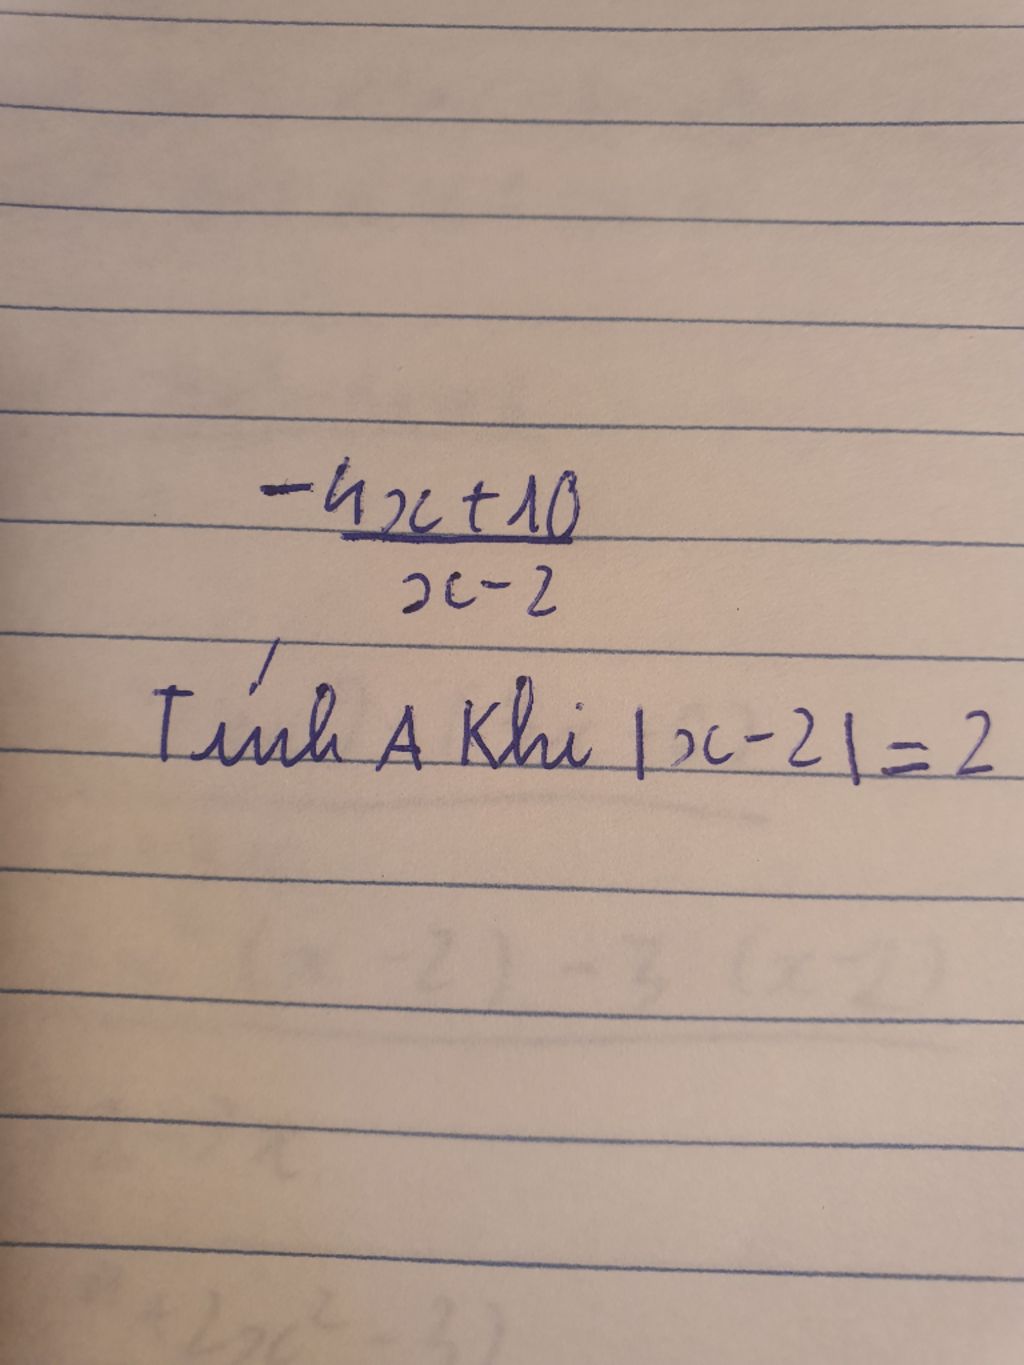 -4x+10
x-2
Tính A Khi |x-2|=2